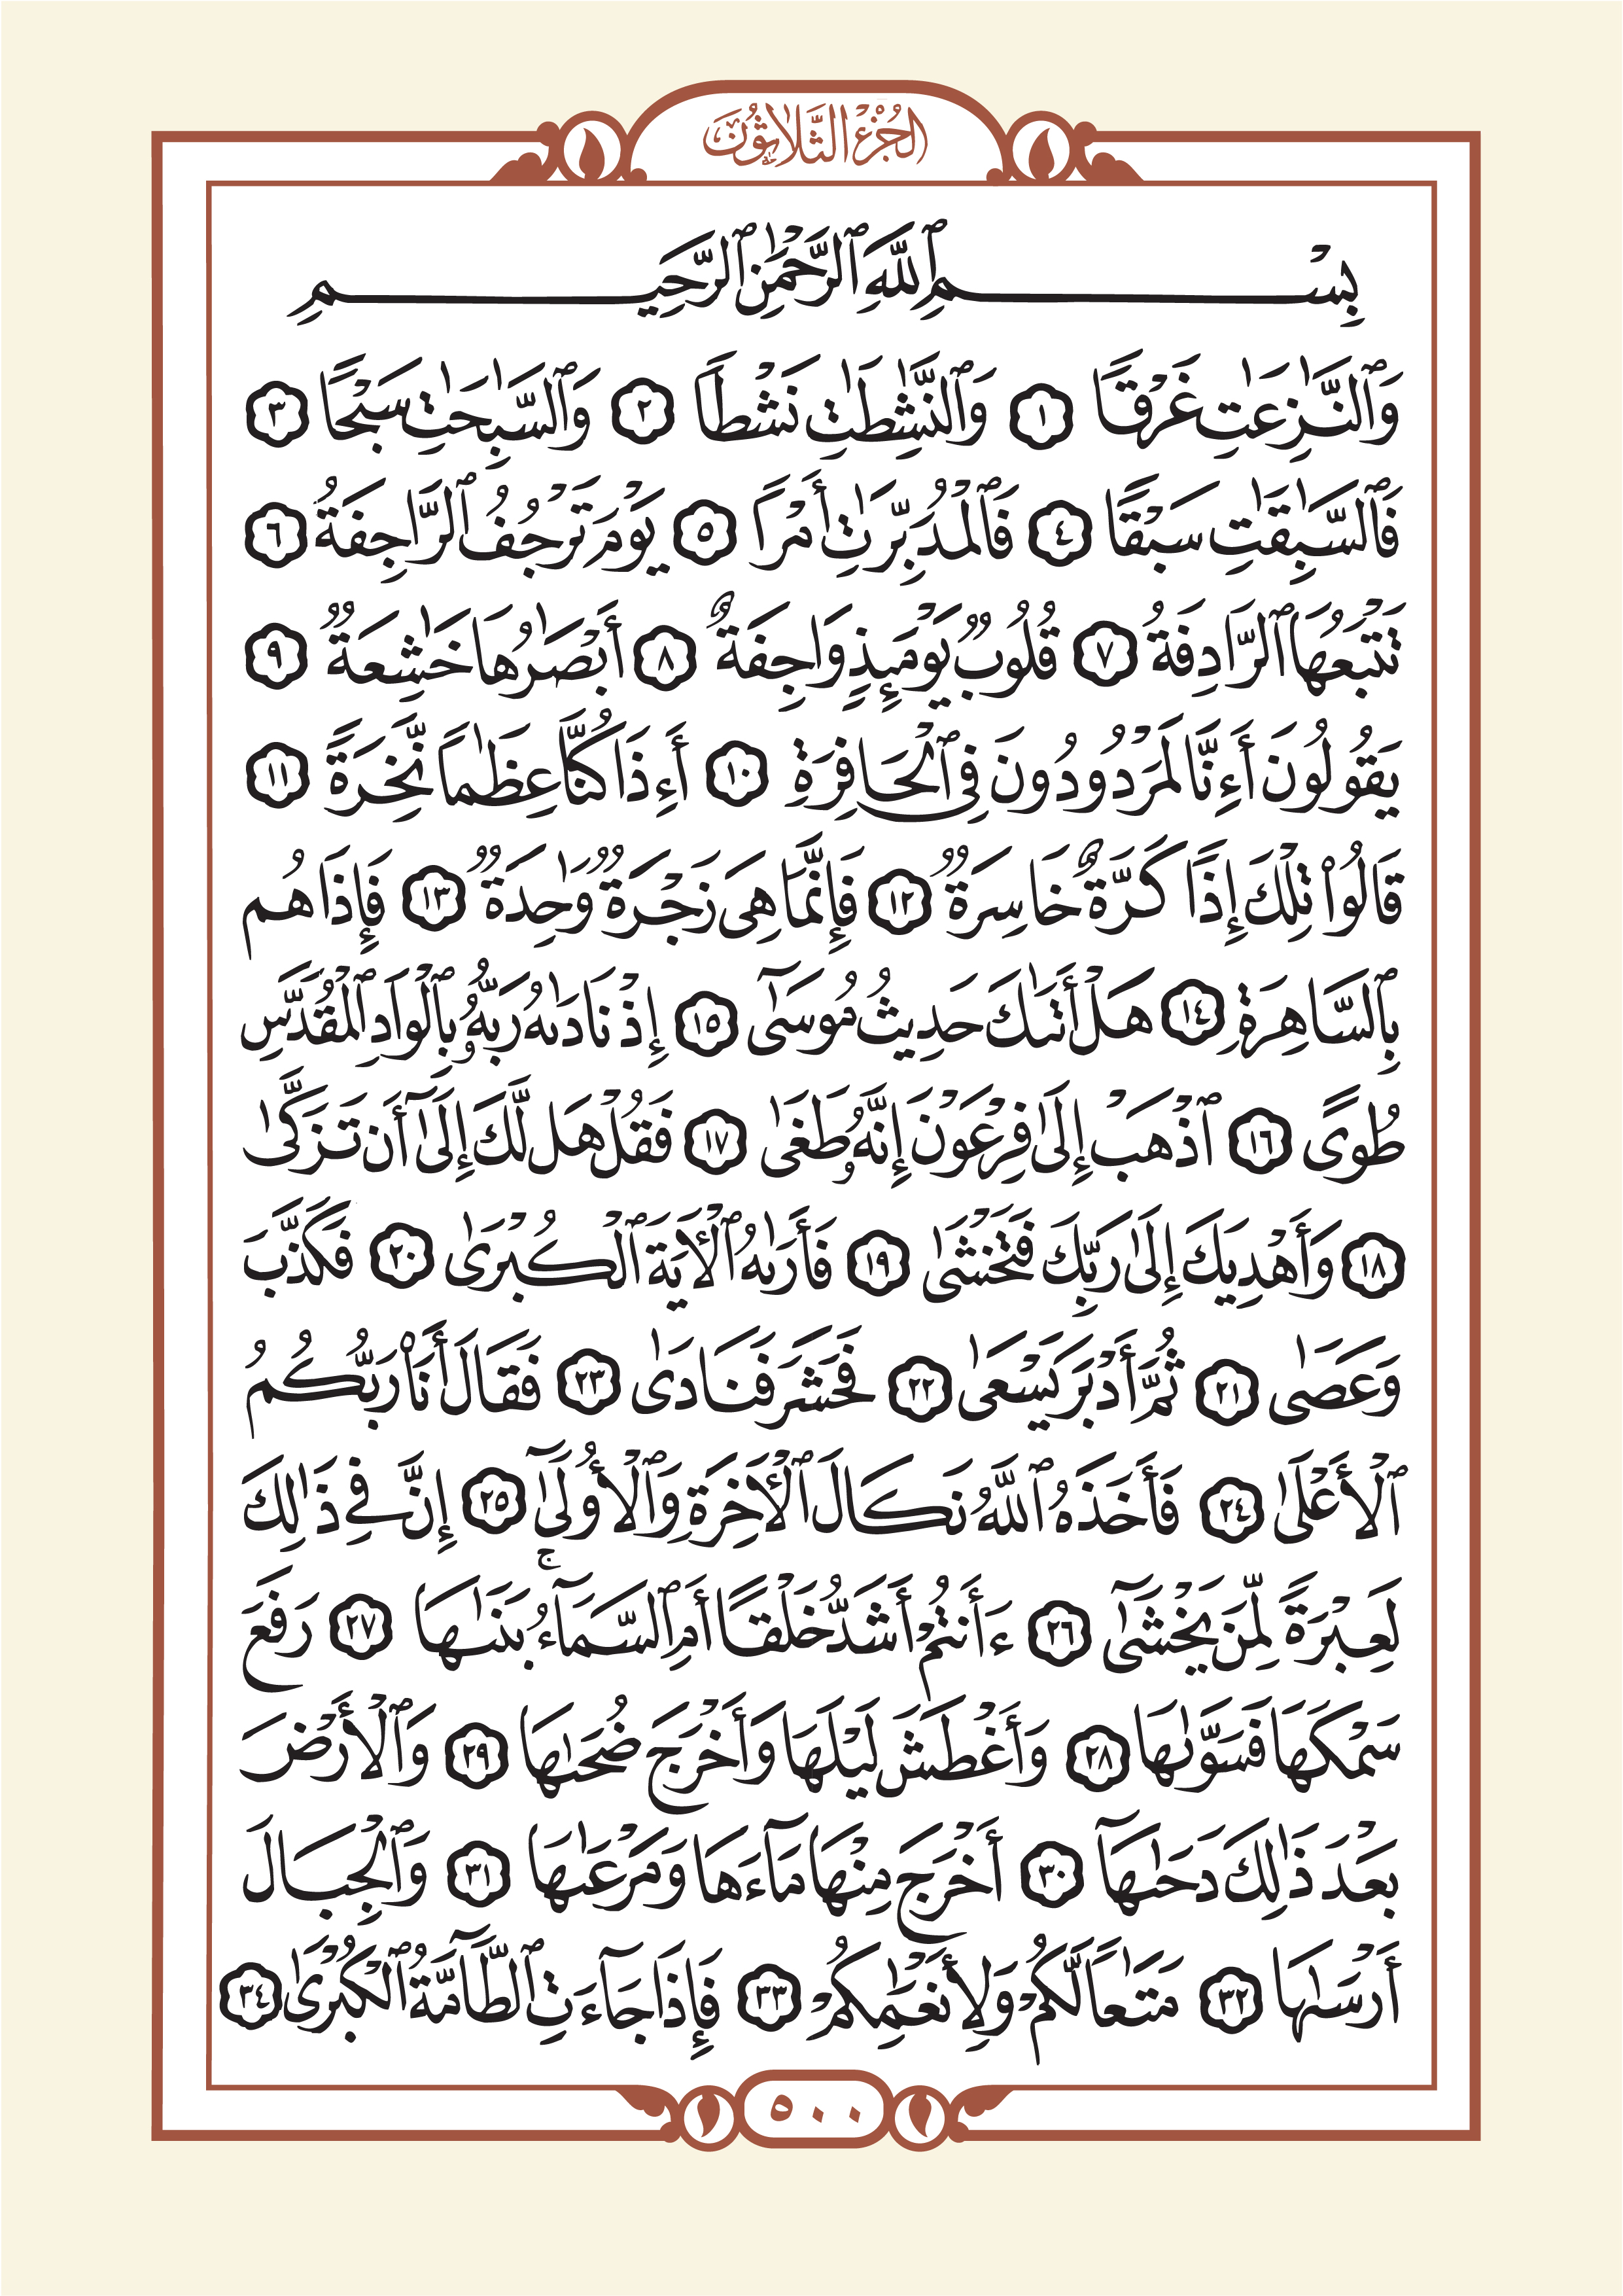 الجُزْءُ الثَّلَاثُونَ
بِسْمِ ٱللَّهِ ٱلرَّحْمَٰنِ ٱلرَّحِيمِ
وَٱلنَّٰزِعَٰتِ غَرْقًا ١ وَٱلنَّٰشِطَٰتِ نَشْطًا ٢ وَٱلسَّٰبِحَٰتِ سَبْحًا ٣
فَٱلسَّٰبِقَٰتِ سَبْقًا ٤ فَٱلْمُدَبِّرَٰتِ أَمْرًا ٥ يَوْمَ تَرْجُفُ ٱلرَّاجِفَةُ ٦
تَتْبَعُهَا ٱلرَّادِفَةُ ٧ قُلُوبٌ يَوْمَئِذٍ وَاجِفَةٌ ٨ أَبْصَٰرُهَا خَٰشِعَةٌ ٩
يَقُولُونَ أَءِنَّا لَمَرْدُودُونَ فِي ٱلْحَافِرَةِ ١٠ أَءِذَا كُنَّا عِظَٰمًا نَّخِرَةً ١١
قَالُوا۟ تِلْكَ إِذًا كَرَّةٌ خَاسِرَةٌ ١٢ فَإِنَّمَا هِىَ زَجْرَةٌ وَٰحِدَةٌ ١٣ فَإِذَا هُم
بِٱلسَّاهِرَةِ ١٤ هَلْ أَتَىٰكَ حَدِيثُ مُوسَىٰٓ ١٥ إِذْ نَادَىٰهُ رَبُّهُۥ بِٱلْوَادِ ٱلْمُقَدَّسِ
طُوًى ١٦ ٱذْهَبْ إِلَىٰ فِرْعَوْنَ إِنَّهُۥ طَغَىٰ ١٧ فَقُلْ هَل لَّكَ إِلَىٰٓ أَن تَزَكَّىٰ
١٨ وَأَهْدِيَكَ إِلَىٰ رَبِّكَ فَتَخْشَىٰ ١٩ فَأَرَىٰهُ ٱلْءَايَةَ ٱلْكُبْرَىٰ ٢٠ فَكَذَّبَ
وَعَصَىٰ ٢١ ثُمَّ أَدْبَرَ يَسْعَىٰ ٢٢ فَحَشَرَ فَنَادَىٰ ٢٣ فَقَالَ أَنَا۠ رَبُّكُمُ
ٱلْأَعْلَىٰ ٢٤ فَأَخَذَهُ ٱللَّهُ نَكَالَ ٱلْءَاخِرَةِ وَٱلْأُولَىٰٓ ٢٥ إِنَّ فِي ذَٰلِكَ
لَعِبْرَةً لِّمَن يَخْشَىٰٓ ٢٦ ءَأَنتُمْ أَشَدُّ خَلْقًا أَمِ ٱلسَّمَآءُ ۚ بَنَىٰهَا ٢٧ رَفَعَ
سَمْكَهَا فَسَوَّىٰهَا ٢٨ وَأَغْطَشَ لَيْلَهَا وَأَخْرَجَ ضُحَىٰهَا ٢٩ وَٱلْأَرْضَ
بَعْدَ ذَٰلِكَ دَحَىٰهَآ ٣٠ أَخْرَجَ مِنْهَا مَآءَهَا وَمَرْعَىٰهَا ٣١ وَٱلْجِبَالَ
أَرْسَىٰهَا ٣٢ مَتَٰعًا لَّكُمْ وَلِأَنْعَٰمِكُمْ ٣٣ فَإِذَا جَآءَتِ ٱلطَّآمَّةُ ٱلْكُبْرَىٰ ٣٤
٥٠٠